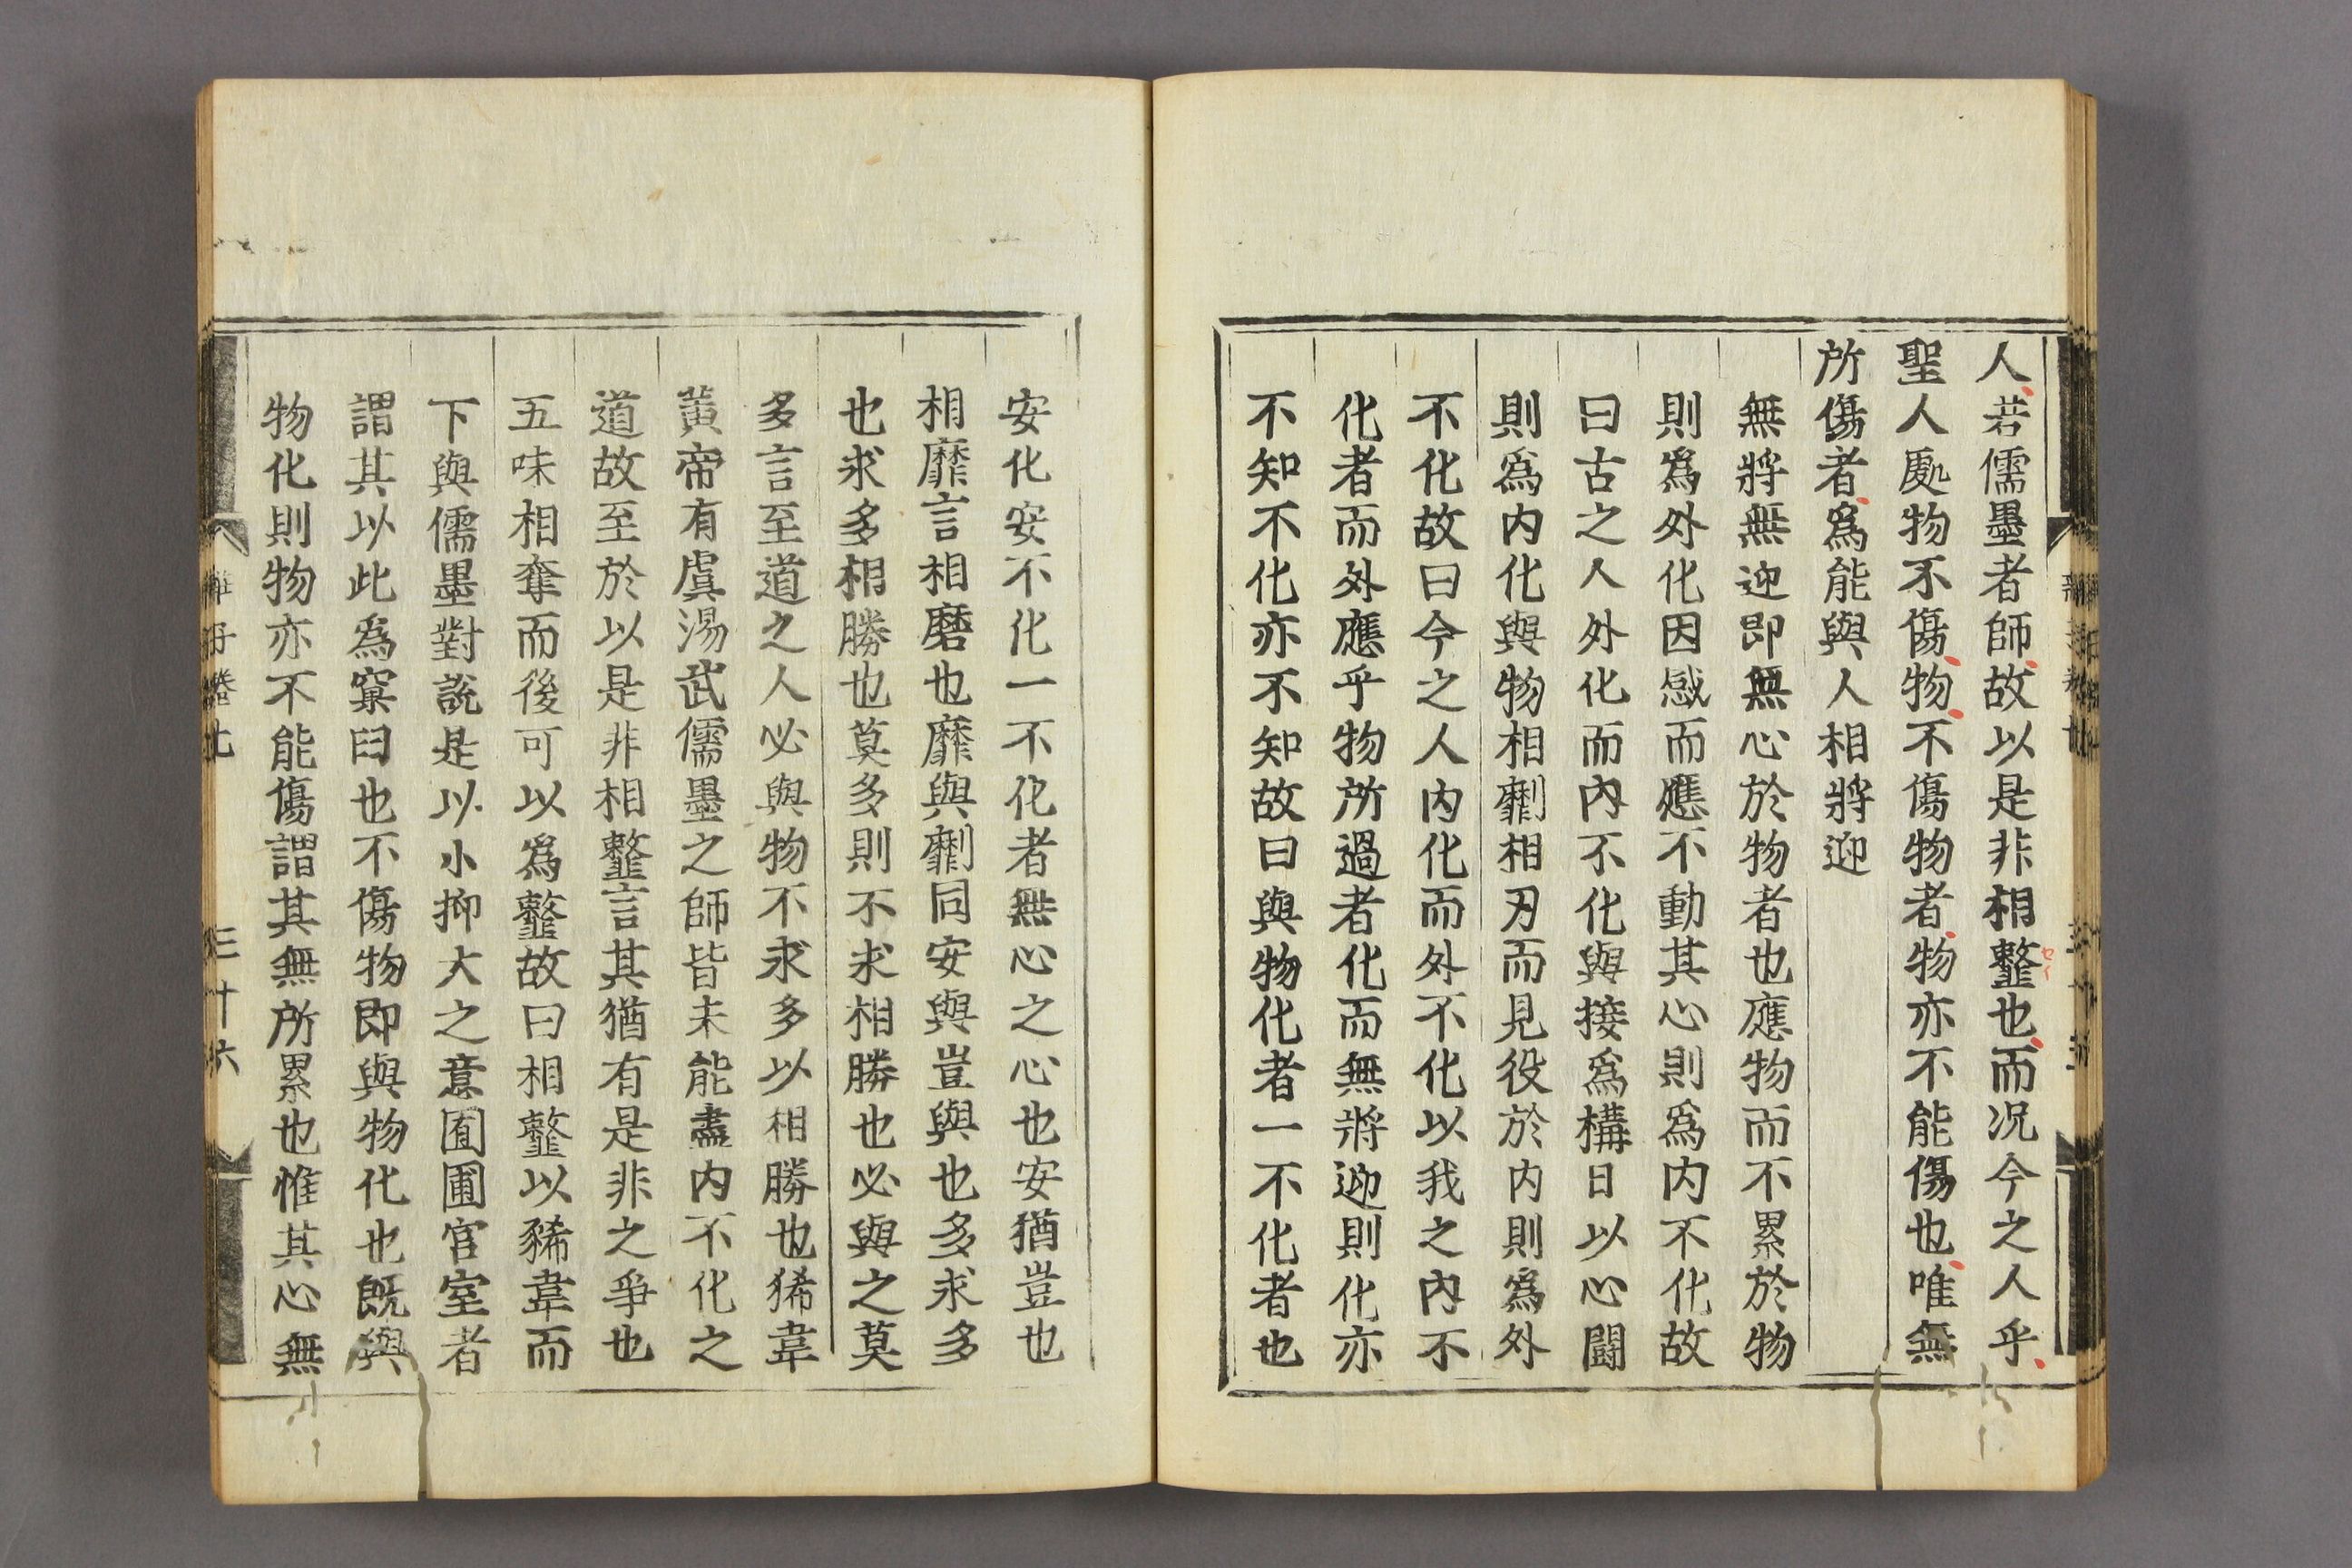 人若儒墨者師故以是非相䪠也而况今之人乎
聖人處物不傷物不傷物者物亦不能傷也唯無
所傷者爲能與人相將迎
無將無迎即無心於物者也應物而不累於物
則爲外化因感而應不動其心則爲内不化故
曰古之人外化而内不化與接爲構日以心鬪
則爲内化與物相劘相刃而見役於内則爲外
不化故曰今之人内化而外不化以我之内不
化者而外應乎物所過者化而無將迎則化亦
不知不化亦不知故曰與物化者一不化者也
安化安不化一不化者無心之心也安猶豈也
相靡言相磨也靡與劘同安與豈與也多求多
也求多相勝也莫多則不求相勝也必與之莫
多言至道之人必與物不求多以相勝也狶韋
黃帝有虞湯武儒墨之師皆未能盡内不化之
道故至於以是非相䪠言其猶有是非之爭也
五味相奪而後可以爲䪠故曰相䪠以豨韋而
下與儒墨對說是以小抑大之意囿圃宮室者
謂其以此爲窠臼也不傷物即與物化也既與
物化則物亦不能傷謂其無所累也惟其心無
三十六